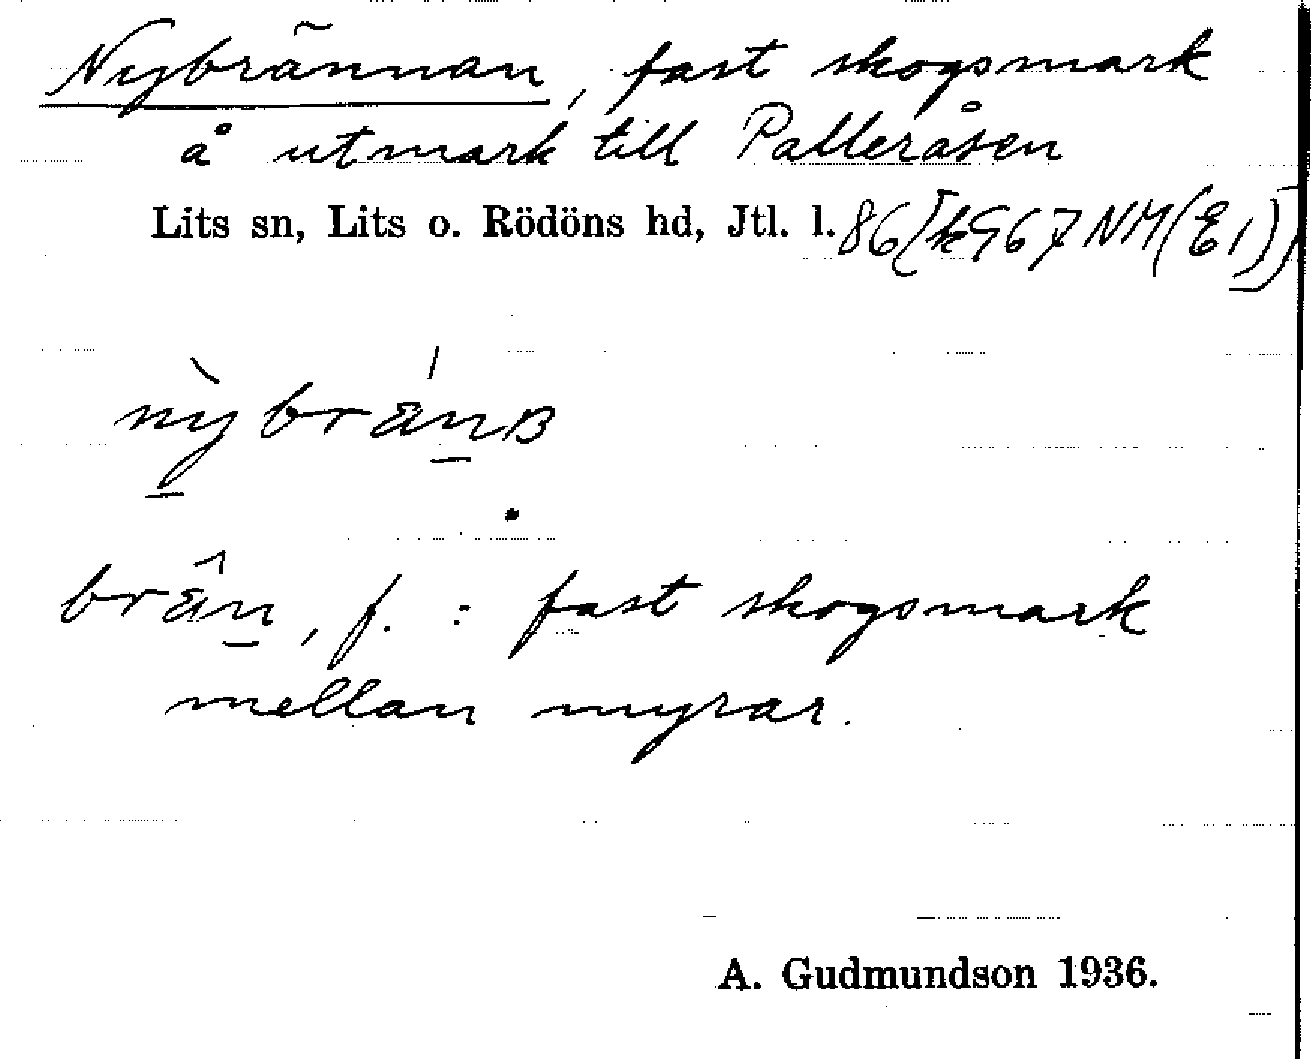 Nybrännan, fast skogsmark
å utmark till Palleråsen
Lits sn, Lits o. Rödöns hd, Jtl. l. 86
nỳbränв
brân, f. : fast skogsmark
mellan myrar.
A. Gudmundson 1936.